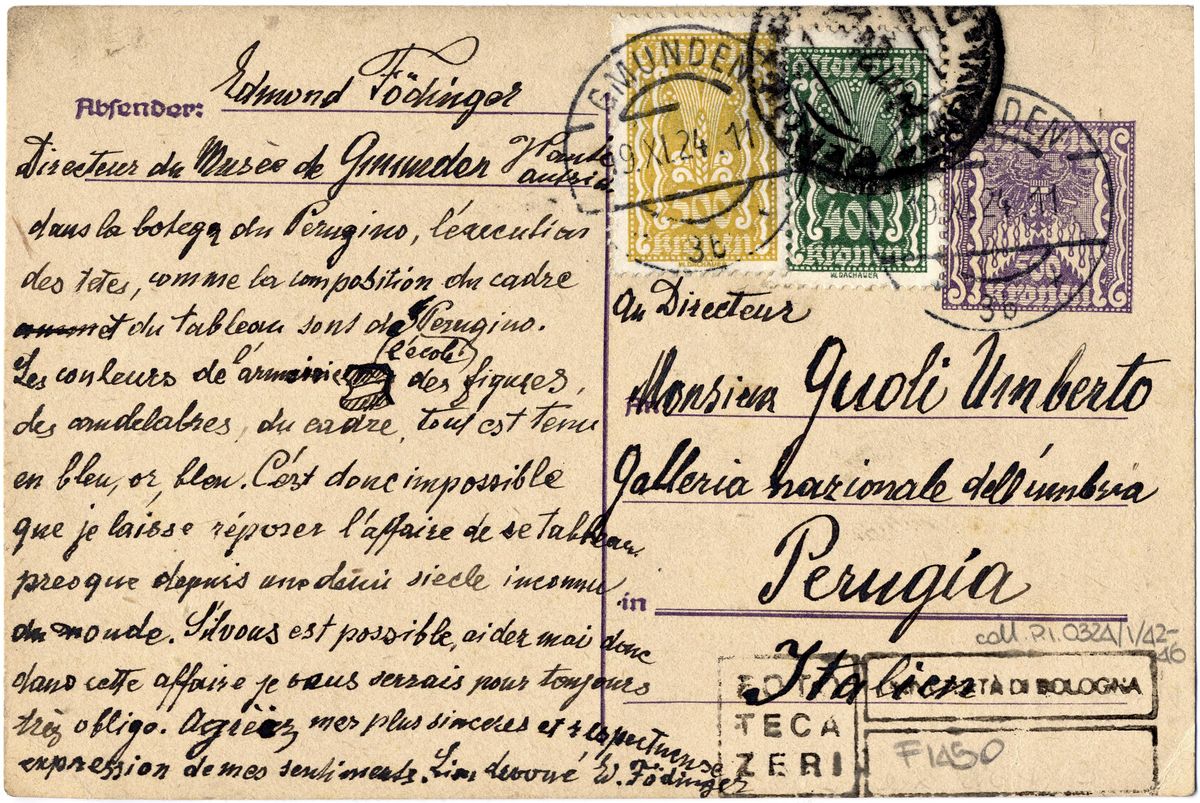 Absender: Edmond Födinger
Directeur du Musée de Gmunden Haute
Austria
dans la botega du Perugino, l'execution
des tetes, comme la composition du cadre
du tableau sont de Perugino.
l'école
Les couleurs de l'armoirie des figures,
des candelabres, du cadre, tout est tenu
en bleu, or, bleu. C'est donc impossible
que je laisse réposer l'affaire de se tableau
presque depuis une demi siecle inconnu
du monde. S'il vous est possible, aider moi donc
dans cette affaire je vous serrais pour toujours
très obligo. Agréez mes plus sinceres et respectueuse
expression de mes sentiments. devoué E. Födinger
GMUNDEN
9.XI.24.11
3b
500
Kronen
Österreich
400
Kronen
W.DACHAUER
GMUNDEN
9.XI.24.11
3b
500
Kronen
au Directeur
Monsieur Guoli Umberto
Galleria nazionale dell'umbria
Perugia
in
Italien
coll. P.I. 0324/1/42-
16
FOTO
TECA
ZERI
UNIVERSITÀ DI BOLOGNA
F1450